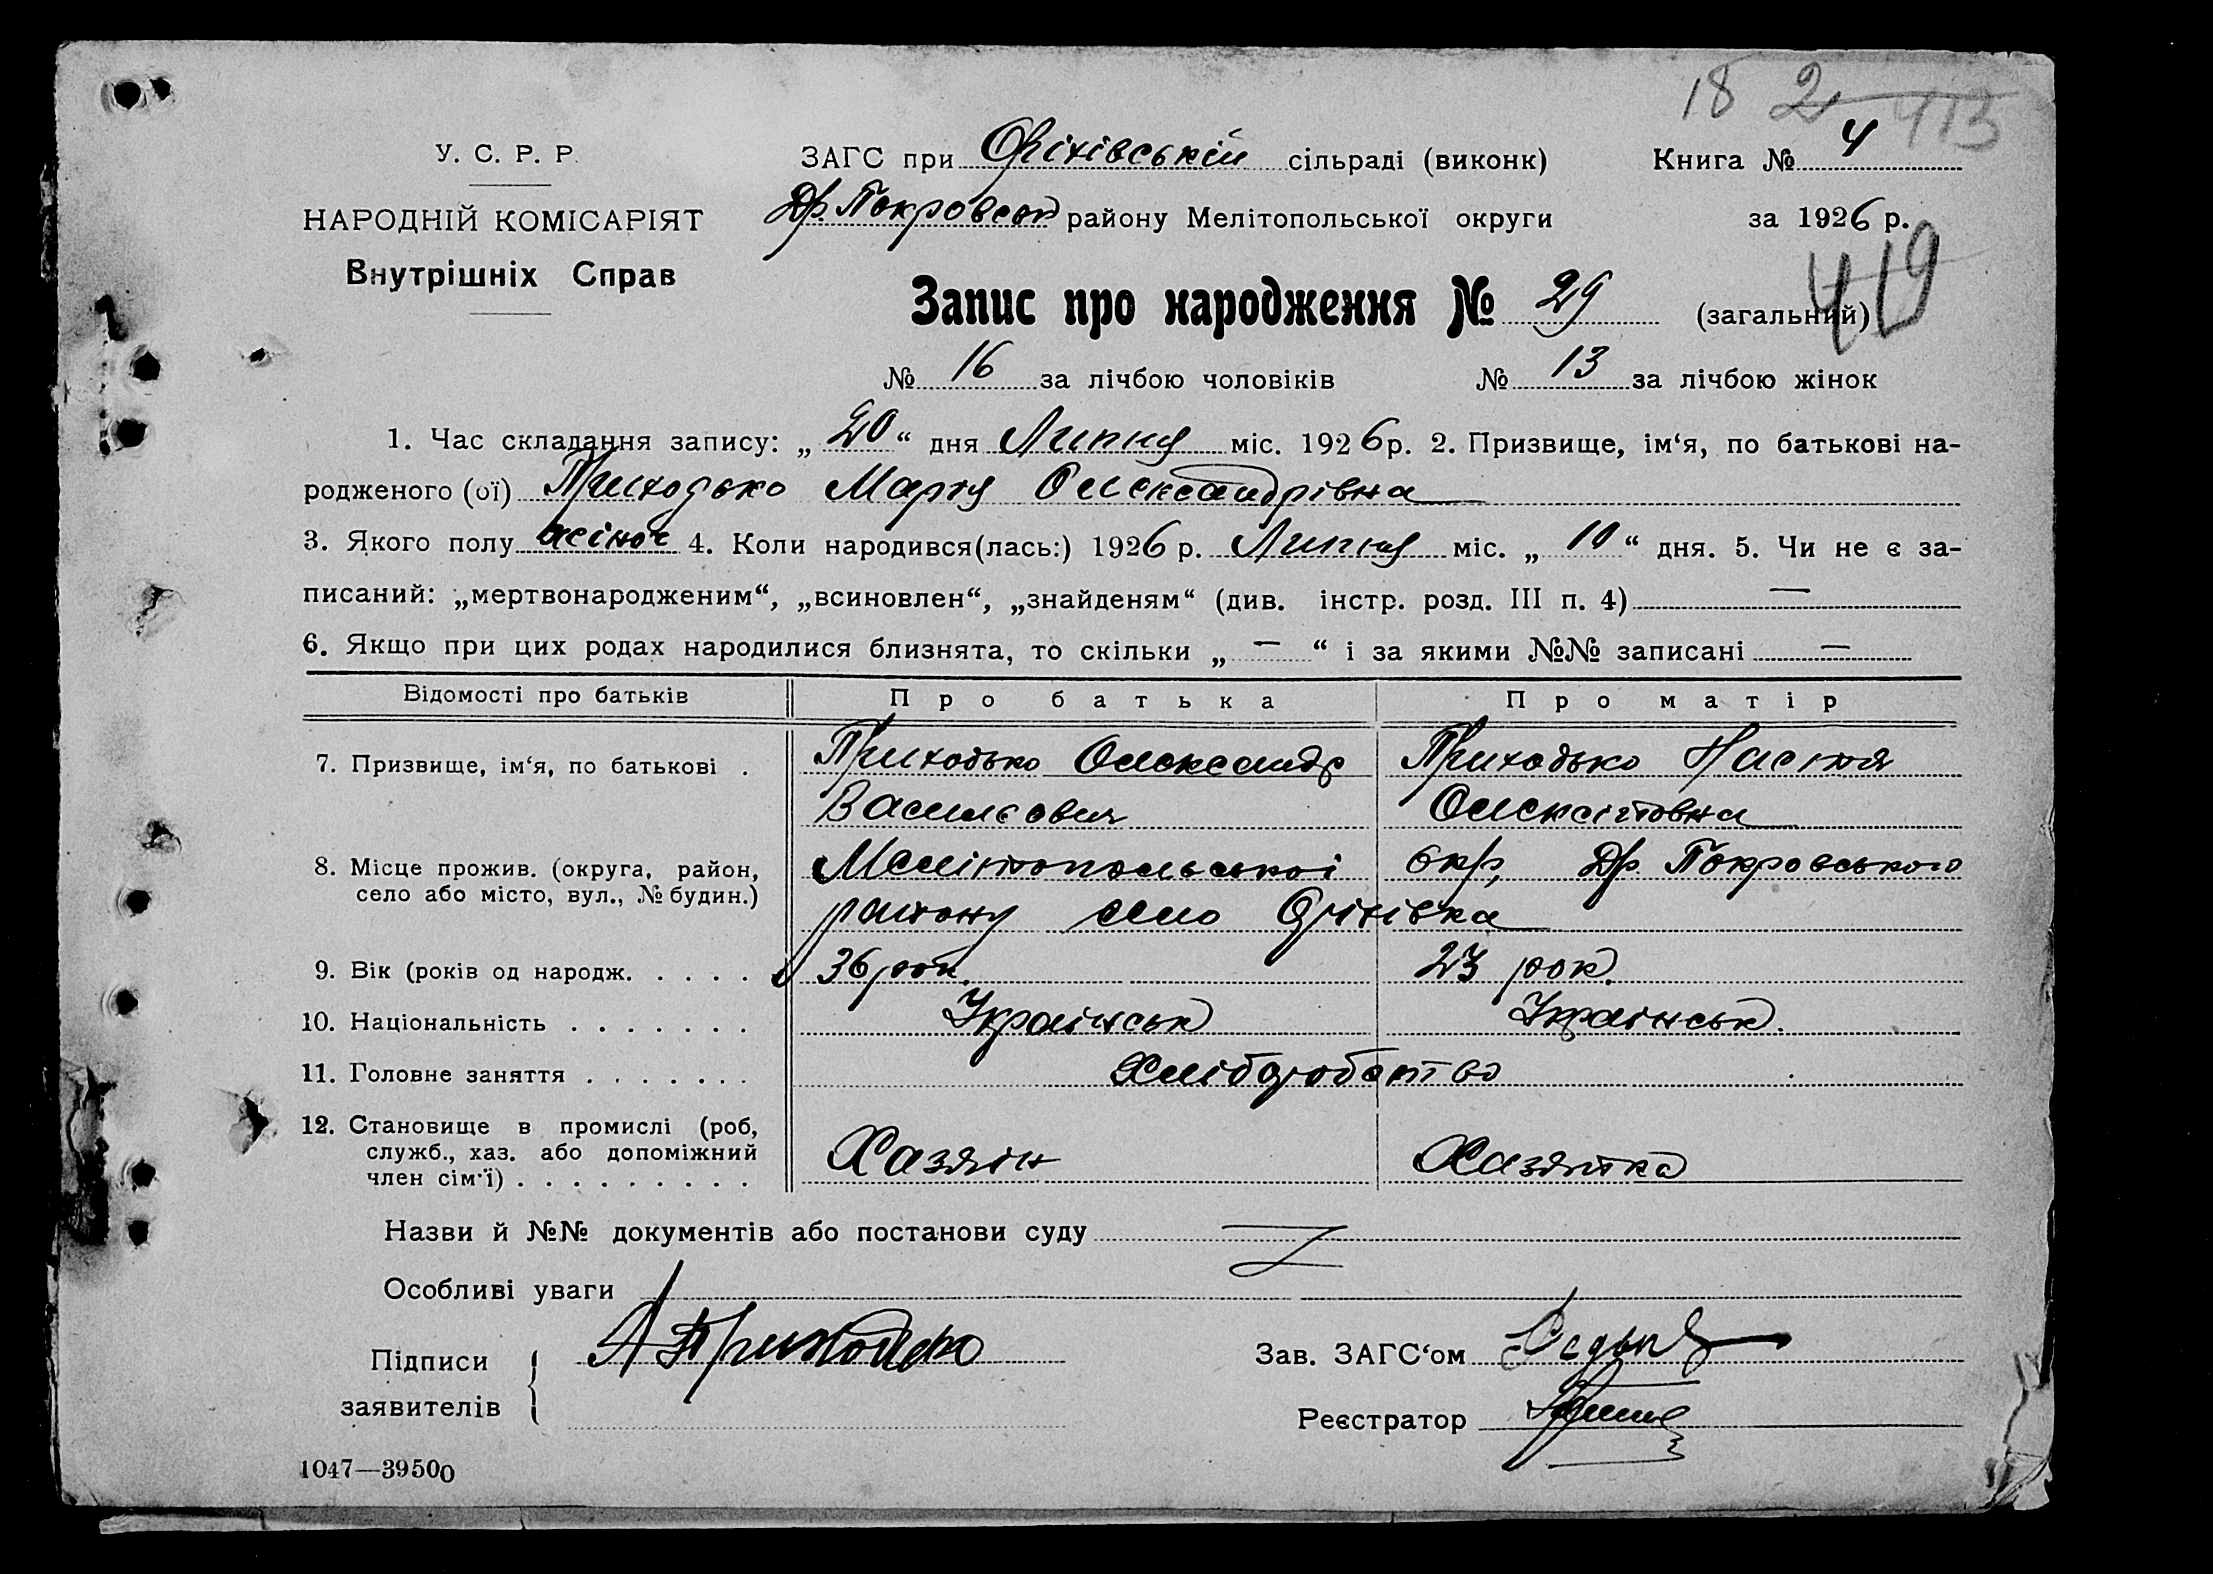 18 2 413
У. С. Р. Р.
ЗАГС при Оріхівській сільраді (виконк)
Книга № 4
НАРОДНІЙ КОМІСАРІЯТ
Др. Покровськ району Мелітопольської округи
за 1926 р.
Внутрішніх Справ
419
Запис про народження № 29 (загальний)
№ 16 за лічбою чоловіків № 13 за лічбою жінок
1. Час складання запису: „20“ дня Липня міс. 1926 р. 2. Призвище, ім‘я, по батькові на-
родженого (ої) Приходько Марія Олександрівна
3. Якого полу жіноч 4. Коли народився(лась:) 1926 р. Липня міс. „10“ дня. 5. Чи не є за-
писаний: „мертвонародженим“, „всиновлен“, „знайденям“ (див. інстр. розд. III п. 4) —
6. Якщо при цих родах народилися близнята, то скільки „ — “ і за якими №№ записані —
Відомості про батьків Про батька Про матір
7. Призвище, ім‘я, по батькові . Приходько Олександр Приходько Настя
Василєович Олексіївна
8. Місце прожив. (округа, район, Мелітопольської окр, Др. Покровського
село або місто, вул., № будин.)
району село Оріхівка
9. Вік (років од народж. . . . . 36 рок. 23 рок.
10. Національність . . . . . . . Українськ Українськ.
11. Головне заняття . . . . . . . Хліборобство
12. Становище в промислі (роб,
служб., хаз. або допоміжний Хазяїн Хазяйка
член сім‘ї) . . . . . . . . .
Назви й №№ документів або постанови суду
Особливі уваги
Підписи А Приходько Зав. ЗАГС‘ом
заявителів Реєстратор
1047—39500